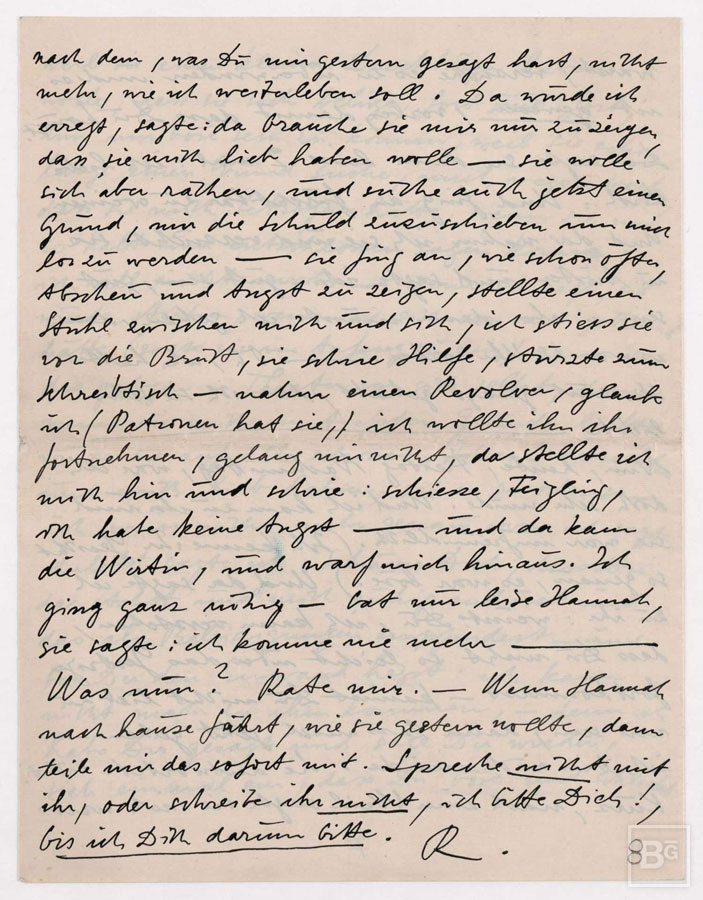 nach dem, was Du mir gestern gesagt hast, nicht
mehr, wie ich weiterleben soll. Da wurde ich
erregt, sagte: da brauche sie mir nur zu zeigen,
dass sie mich lieb haben wolle — sie wolle
sich aber rächen, und suche auch jetzt einen
Grund, mir die Schuld zuzuschieben um mich
los zu werden — sie fing an, wie schon öfter,
Abscheu und Angst zu zeigen, stellte einen
Stuhl zwischen mich und sich, ich stiess sie
vor die Brust, sie schrie Hilfe, stürzte zum
Schreibtisch — nahm einen Revolver, glaube
ich (Patronen hat sie,) ich wollte ihn ihr
fortnehmen, gelang mir nicht, da stellte ich
mich hin und schrie: schiesse, Feigling,
ich habe keine Angst — und da kam
die Wirtin, und warf mich hinaus. Ich
ging ganz ruhig — bat nur leise Hannah,
sie sagte: ich komme nie mehr —
Was nun? Rate mir. — Wenn Hannah
nach hause fährt, wie sie gestern wollte, dann
teile mir das sofort mit. Spreche nicht mit
ihr, oder schreibe ihr nicht, ich bitte Dich!,
bis ich Dich darum bitte. R.
8
BG